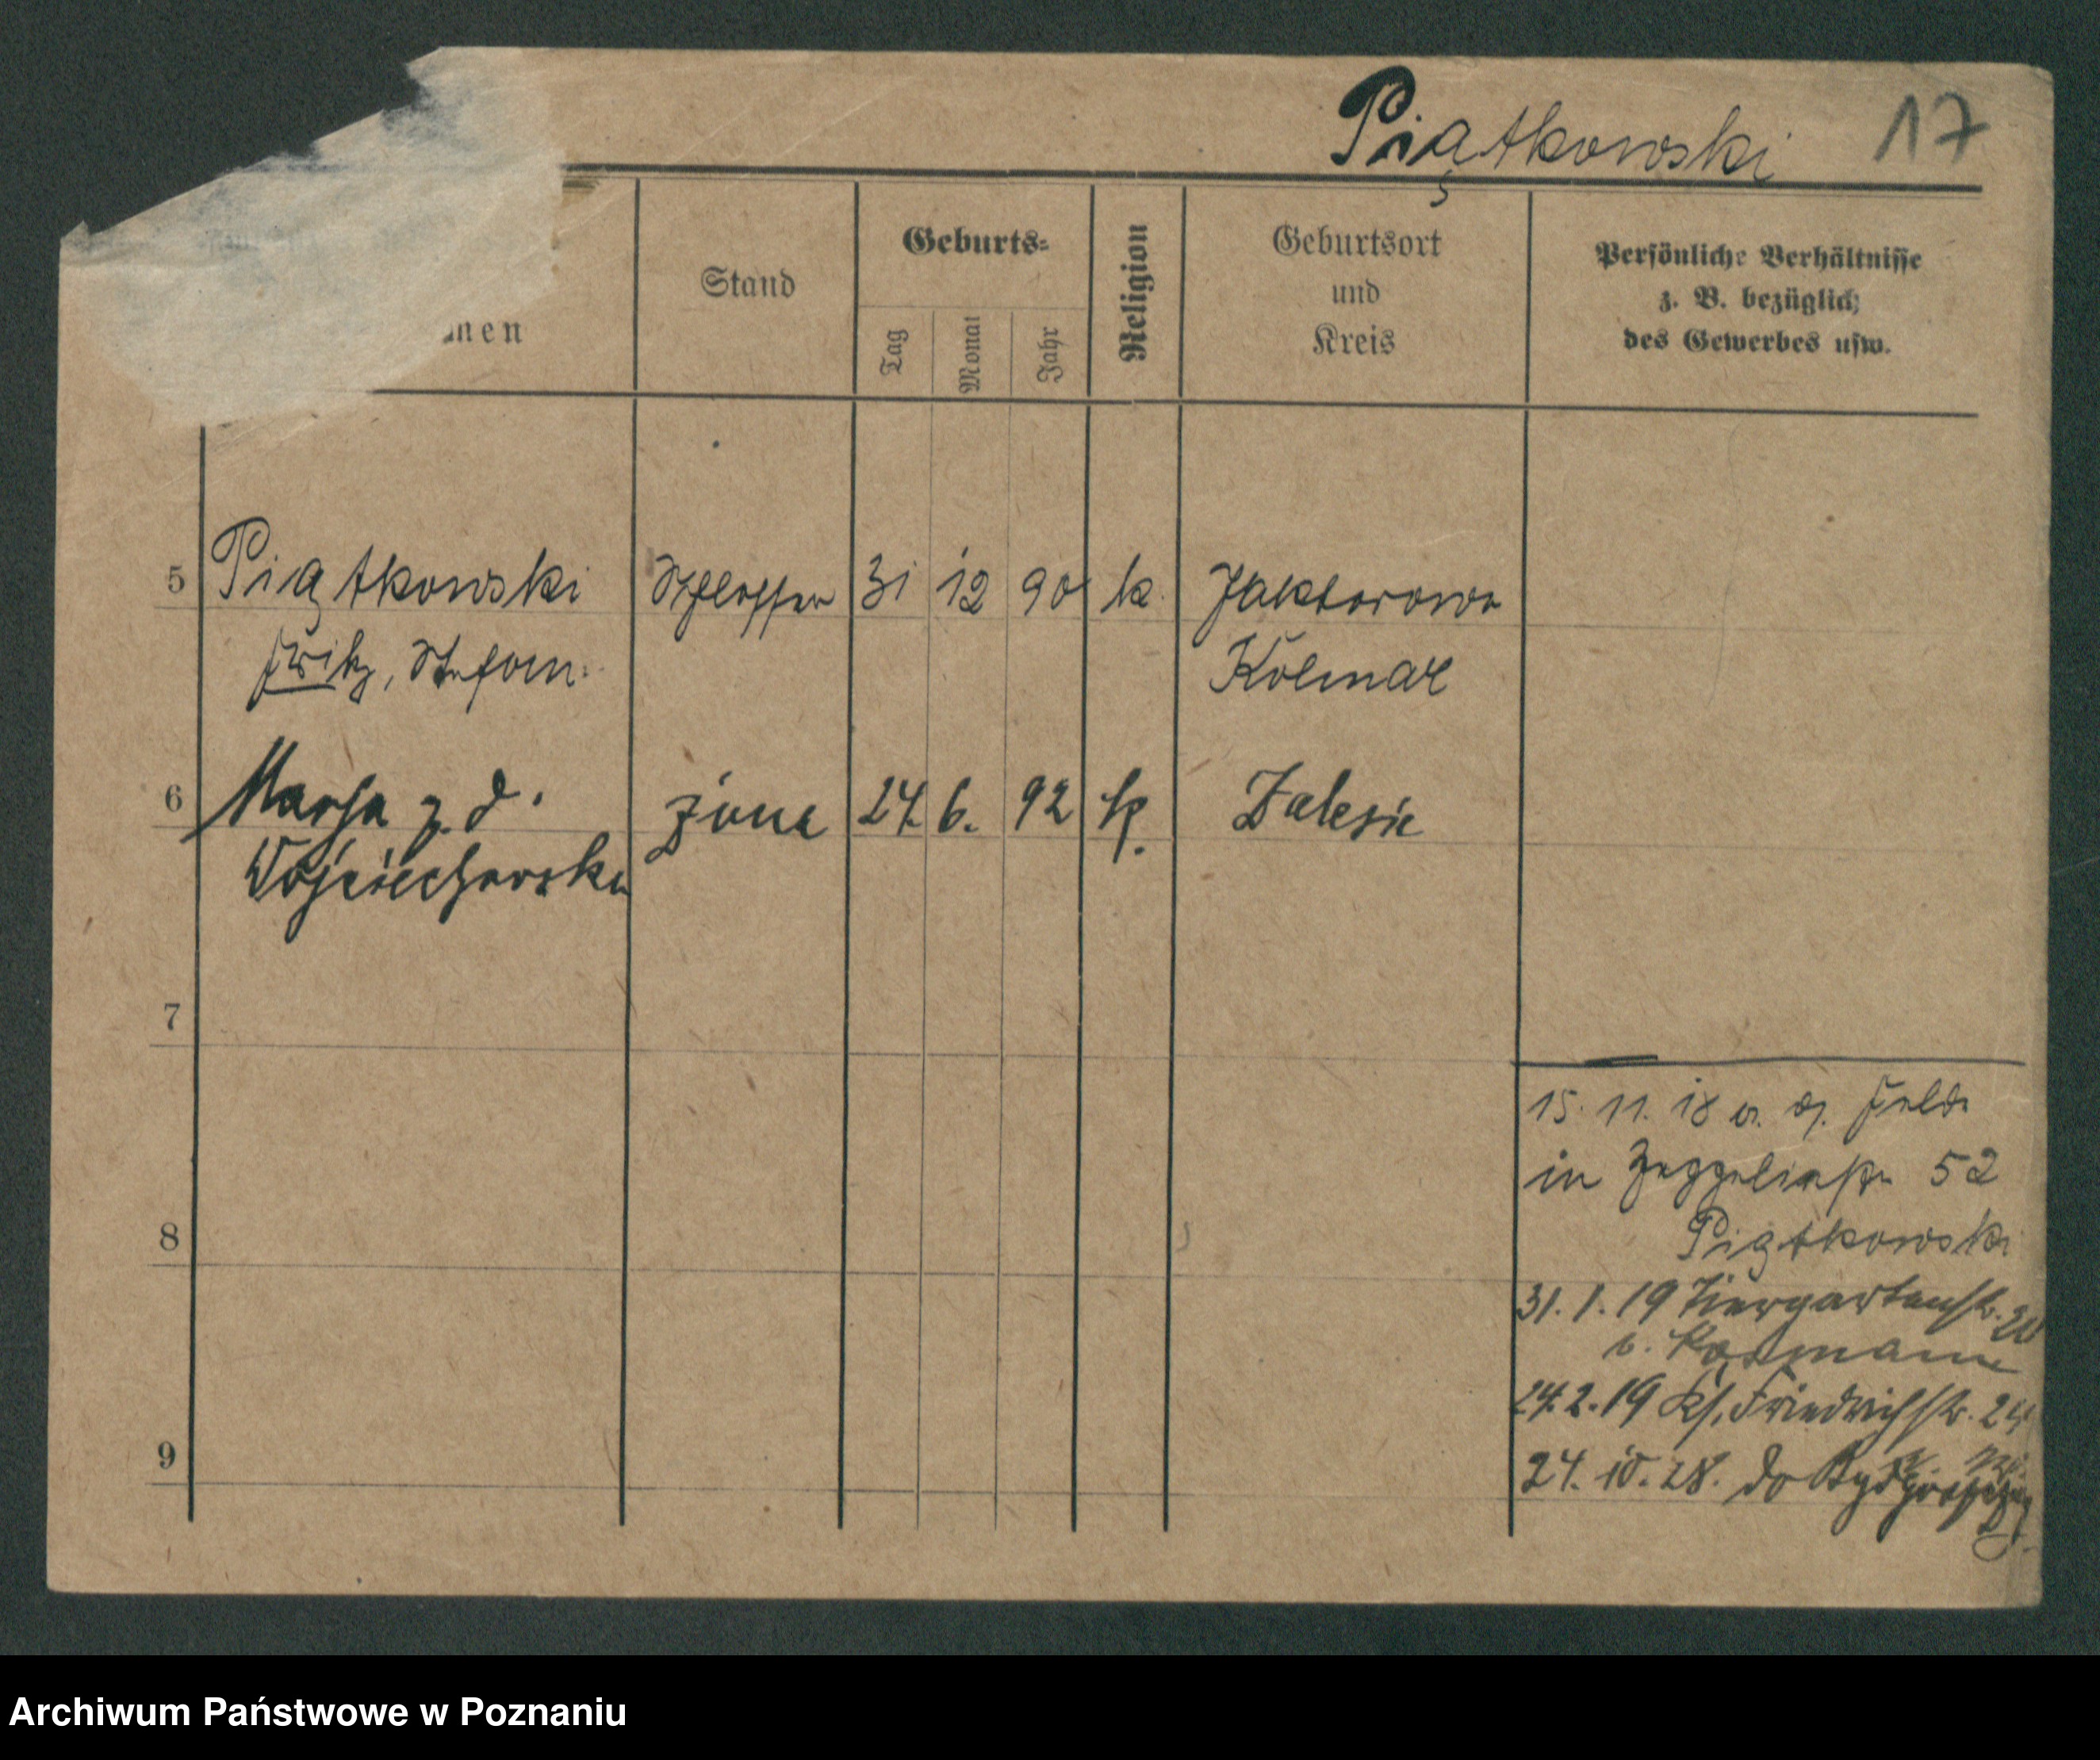 Piątkowski 17
nen
Stand
Geburts=
Tag
Monat
Jahr
Religion
Geburtsort
und
Kreis
Persönliche Verhältnisse
z. B. bezüglich
des Gewerbes usw.
5 Piątkowski Schlosser 31 12 90 k. Jaktorowo
Fritz, Stefan. Kolmar
6 Marja z. d. żona 24. 6. 92 k. Zalesie
Wojciechowska
7
15. 11. 18 a. d. Felde
in Zeppelinstr. 52
8
Piątkowski
31. 1. 19 Tiergartenstr.
b.
24. 2. 19 Ks. Friedrichstr. 24
9
24. 10. 28. do Bydgoszczy
Archiwum Państwowe w Poznaniu